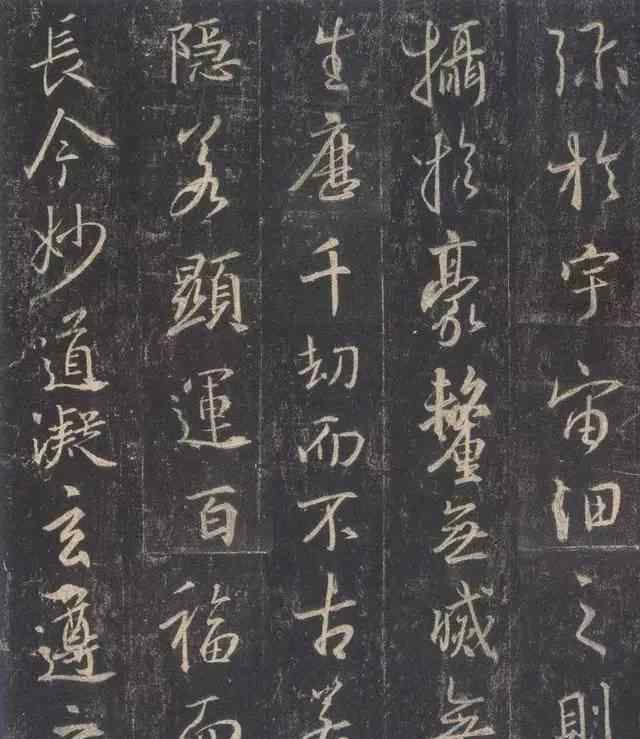 弥於宇宙細之則
攝於豪氂無滅無
生歷千劫而不古若
隱若顯運百福而
長今妙道凝玄遵之